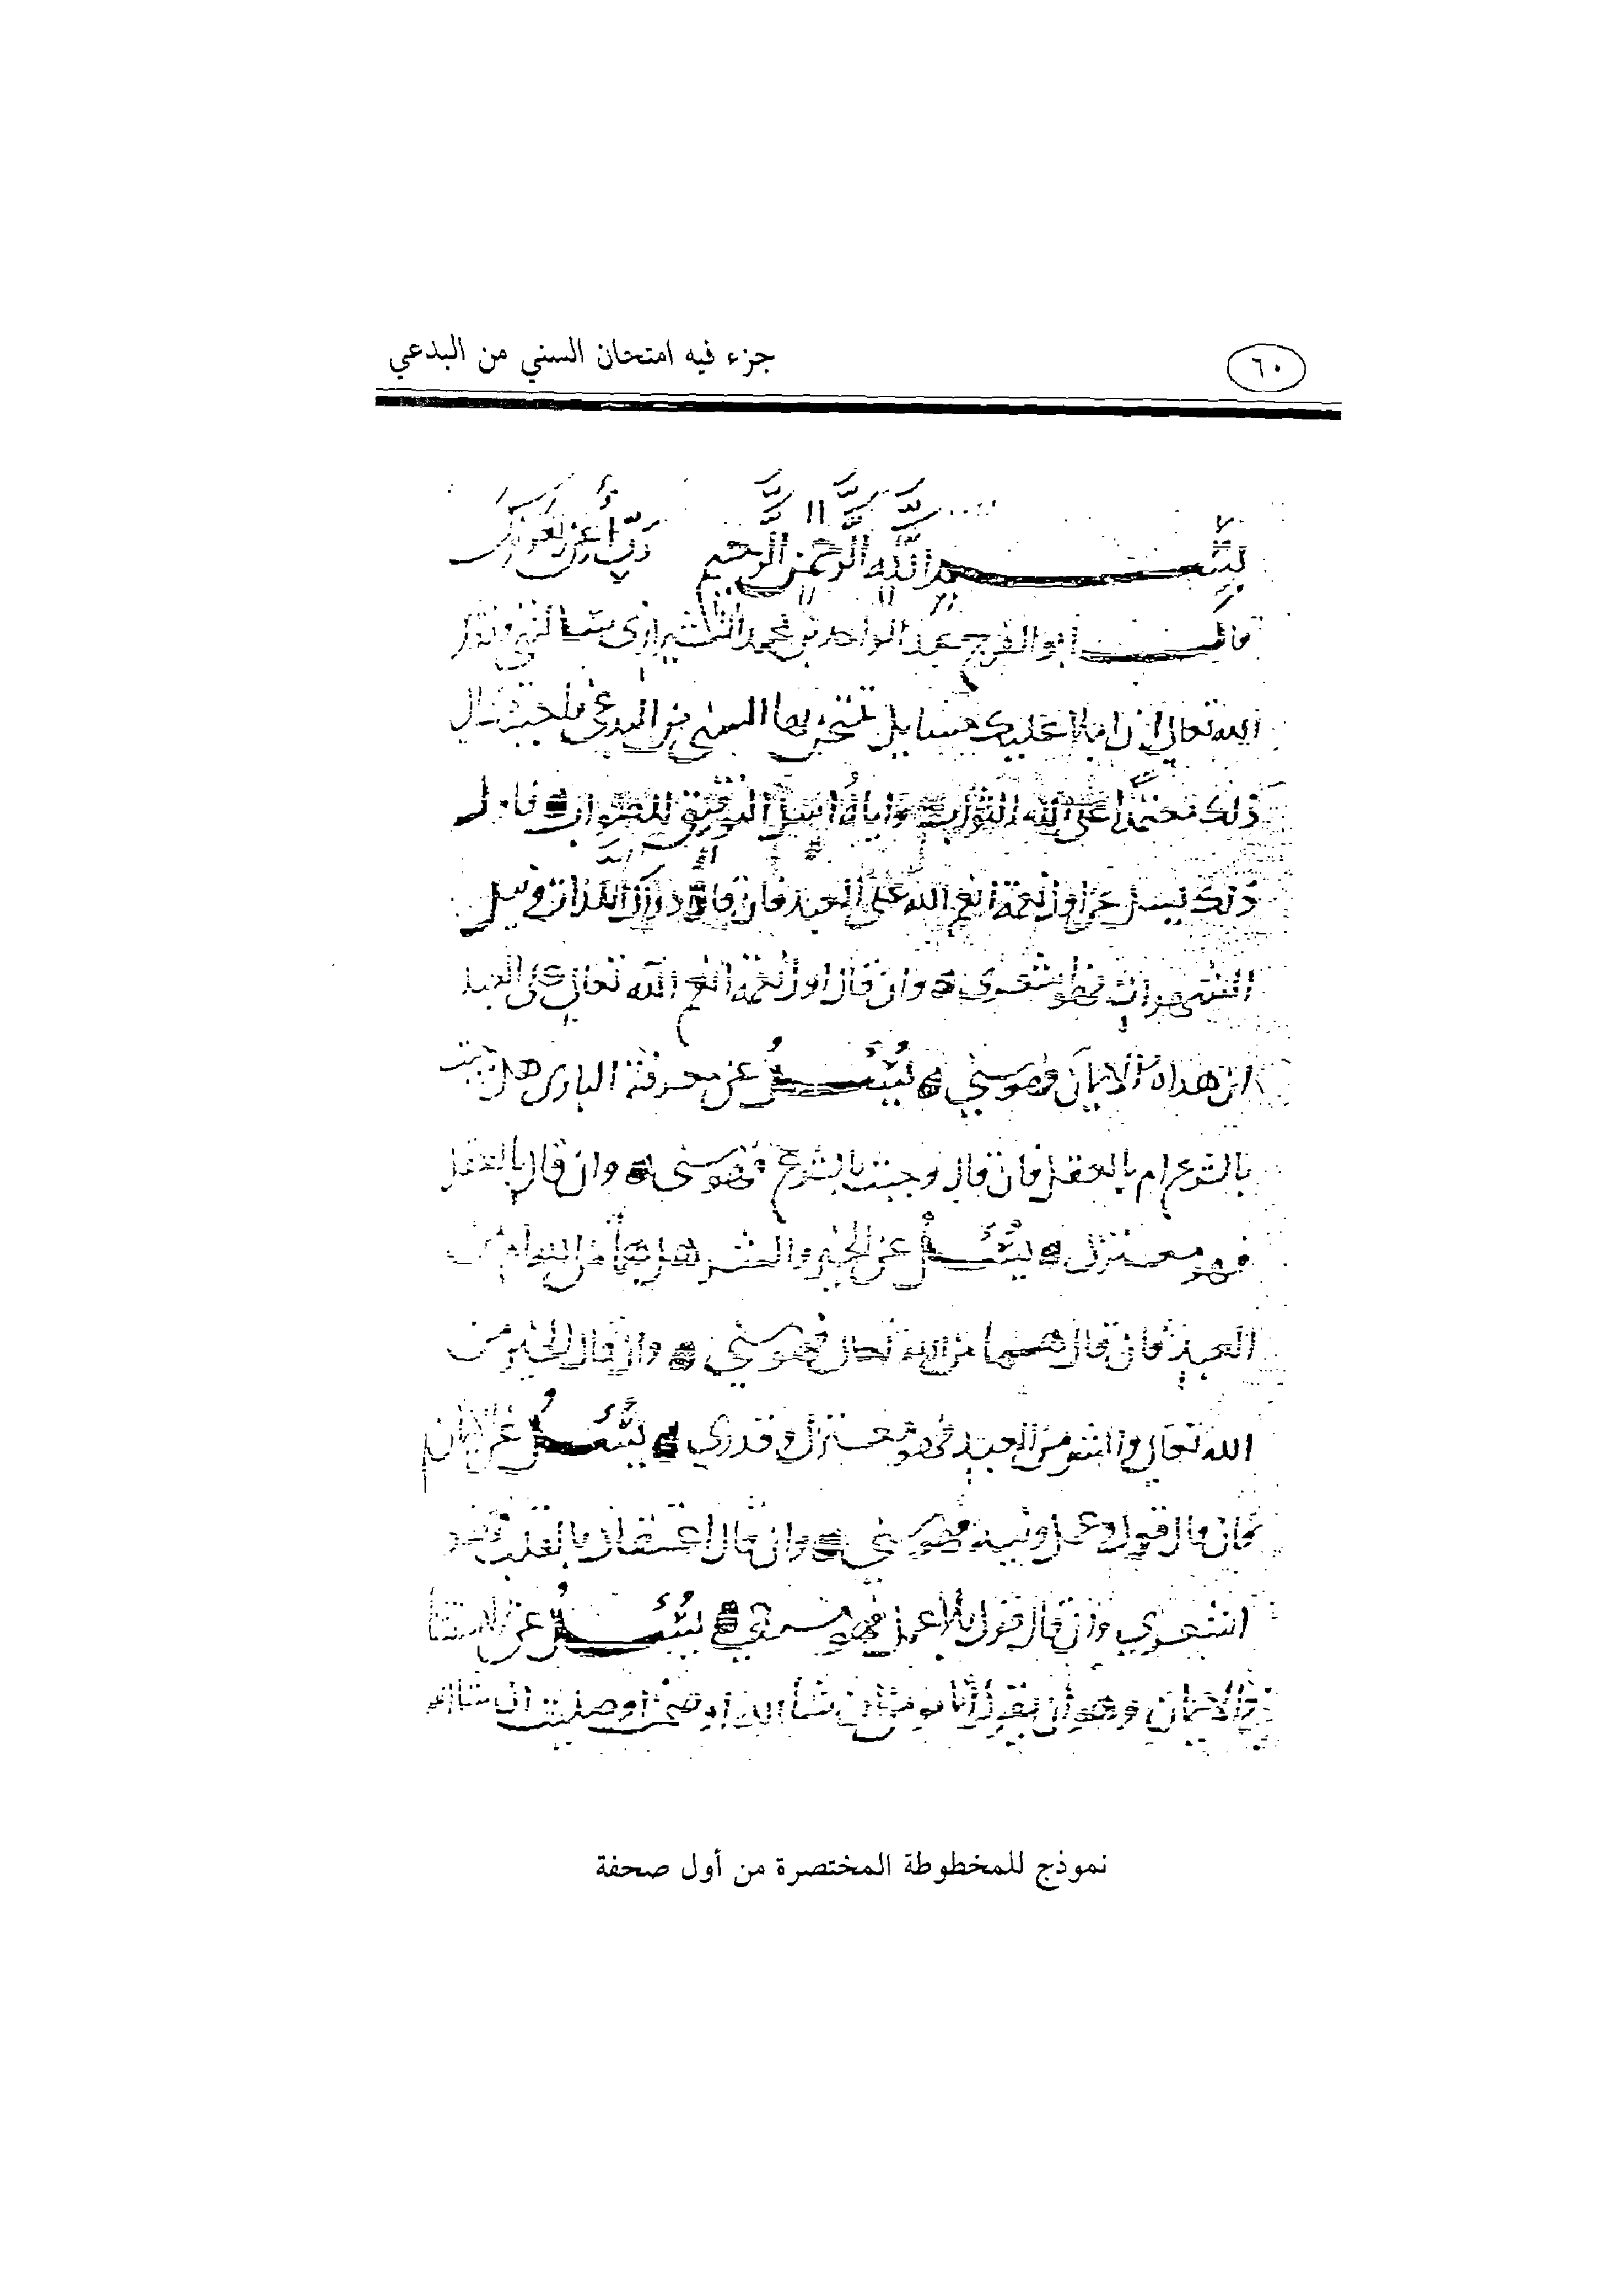 ٦٠
جزء فيه امتحان السني من البدعي
بسم الله الرحمن الرحيم رب أعن
قال ابو الفرج عبد الواحد بن محمد الشيرازي
الله تعالى ان املا عليك مسايل تمتحن بها السني من البدعي
ذلك الله الثواب واياه اسل التوفيق للصواب فاول
ذلك يسل عن اول نعمة انعم الله على العبد فان قال ادراك اللذات
الشهوات فهو اشعري وان قال اول نعمة انعم الله تعالى على العبد
ان هداه للايمان فهو سني يسئل عن معرفة الباري هل
بالشرع ام بالعقل فان قال وجبت بالشرع فهو سني وان قال بالعقل
فهو معتزلي يسئل عن الخير والشر هل هما من الله ام من
العبد فان قال هما من الله تعالى فهو سني وان قال الخير من
الله تعالى والشر من العبد فهو معتزلي وقدري يسئل عن الايمان
فان قال قول وعمل ونية فهو سني وان قال اعتقاد بالقلب فهو
اشعري وان قال قول بلا عمل فهو يسئل عن
في الايمان وهو ان يقول انا مومن ان شا الله
نموذج للمخطوطة المختصرة من أول صحفة